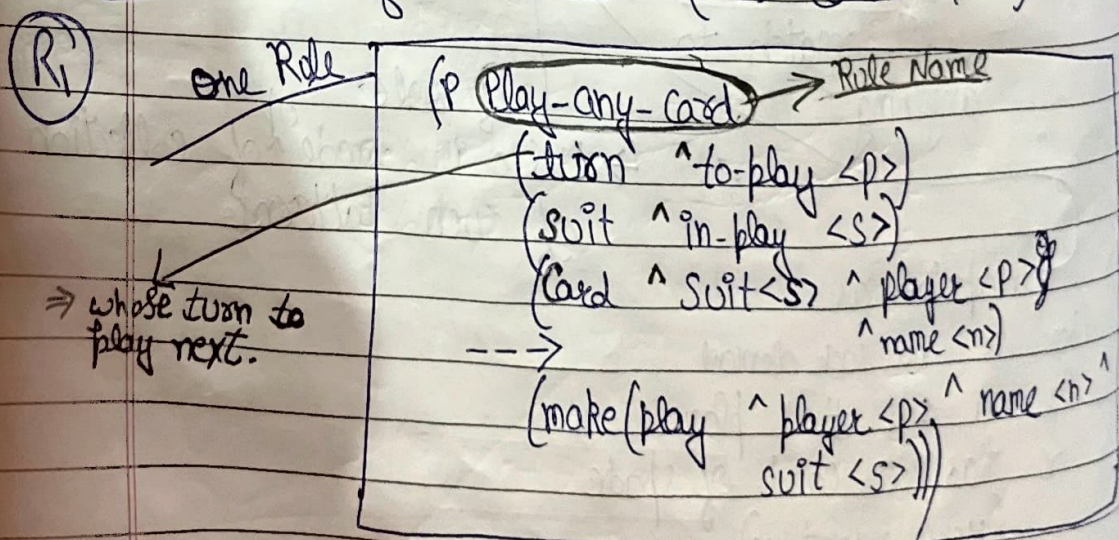 R1
one Rule
(P Play-any-Card → Rule Name
(turn ^to-play <p>)
(suit ^in-play <s>)
(Card ^ Suit<s> ^ player <p>
^name <n>)
⇒ whose turn to
play next.
--->
(make(play ^ player <p> ^ name <n> ^
suit <s>)))